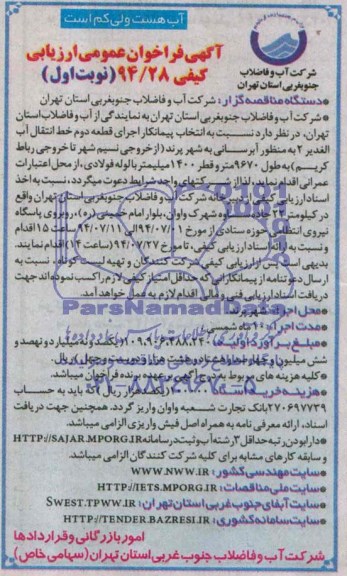 آب هست ولی کم است
شرکت آب و فاضلاب
جنوبغربی استان تهران
آگهی فراخوان عمومی ارزیابی
کیفی ۹۴/۲۸ (نوبت اول)
دستگاه مناقصه گزار: شرکت آب و فاضلاب جنوبغربی استان تهران
شرکت آب و فاضلاب جنوبغربی استان تهران به نمایندگی از آب و فاضلاب استان
تهران، در نظر دارد نسبت به انتخاب پیمانکار اجرای قطعه دوم خط انتقال آب
الغدیر ۲ به منظور آبرسانی به شهر پرند (از خروجی نسیم شهر تا خروجی رباط
کریم) به طول ۹۶۷۰متر و قطر ۱۴۰۰میلیمتر با لوله فولادی، از محل اعتبارات
عمرانی اقدام نماید، لذا از شرکتهای واجد شرایط دعوت میگردد، نسبت به اخذ
اسناد ارزیابی کیفی از دبیرخانه شرکت آب و فاضلاب جنوبغربی استان تهران واقع
در کیلومتر ۲۳ جاده شهرک واوان، بلوار امام خمینی (ره)، روبروی پاسگاه
نیروی انتظامی حوزه ستادی از مورخ ۹۴/۰۷/۰۱ الی ۹۴/۰۷/۱۱ ساعت ۱۵ اقدام
و نسبت به ارائه اسناد ارزیابی کیفی، تا مورخ ۹۴/۰۷/۲۷ (ساعت ۱۴) اقدام نمایند.
بدیهی است پس از ارزیابی کیفی شرکت کنندگان و تهیه لیست کوتاه، نسبت به
ارسال دعوتنامه از پیمانکارانی که حداقل امتیاز کیفی لازم را کسب نموده اند جهت
دریافت اسناد ارزیابی فنی و مالی اقدام لازم به عمل خواهد آمد.
محل اجرا: شهر پرند
مدت اجرا: ماه شمسی
مبلغ برآورد اولیه: (یکصد و نه میلیارد و نهصد و
شش میلیون و سیصد و هشتاد و هشت هزار و دویست و چهل) ریال
کلیه هزینه های مربوط به درج آگهی بر عهده برنده فراخوان میباشد.
هزینه خرید اسناد: ریال که باید به حساب
۲۷۰۶۹۷۷۳۹ بانک تجارت شعبه واوان واریز گردد. همچنین جهت دریافت
اسناد، ارائه معرفی نامه به همراه اصل فیش واریزی الزامی میباشد.
دارا بودن رتبه حداقل ۳ رشته آب و ثبت در سامانه HTTP://SAJAR.MPORG.IR
و سابقه کار های مشابه برای کلیه شرکت کنندگان الزامی میباشد.
سایت مهندسی کشور: WWW.NWW.IR
سایت ملی مناقصات: HTTP://IETS.MPORG.IR
سایت آبفای جنوب غربی استان تهران: SWEST.TPWW.IR
سایت سامانه کشوری: HTTP://TENDER.BAZRESI.IR
امور بازرگانی و قراردادها
شرکت آب و فاضلاب جنوب غربی استان تهران (سهامی خاص)
ParsNamadData
۰۲۱-۸۸۳۴۹۶۷۰-۵